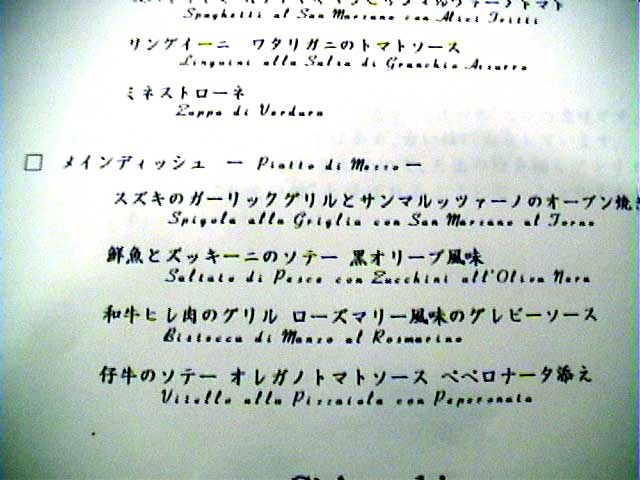 Spaghetti al San Marzano con Alici Tritti
リングイーニ ワタリガニのトマトソース
Linguini alla Salsa di Granchio Azzurro
ミネストローネ
Zuppa di Verdura
□ メインディッシュ ー Piatto di Mezzo ー
スズキのガーリックグリルとサンマルッツァーノのオーブン焼き
Spigola alla Griglia con San Marzano al Forno
鮮魚とズッキーニのソテー 黒オリーブ風味
Saltato di Pesce con Zucchini all'Oliva Nera
和牛ヒレ肉のグリル ローズマリー風味のグレビーソース
Bistecca di Manzo al Rosmarino
仔牛のソテー オレガノトマトソース ペペロナータ添え
Vitello alla Pizzaiola con Peperonata